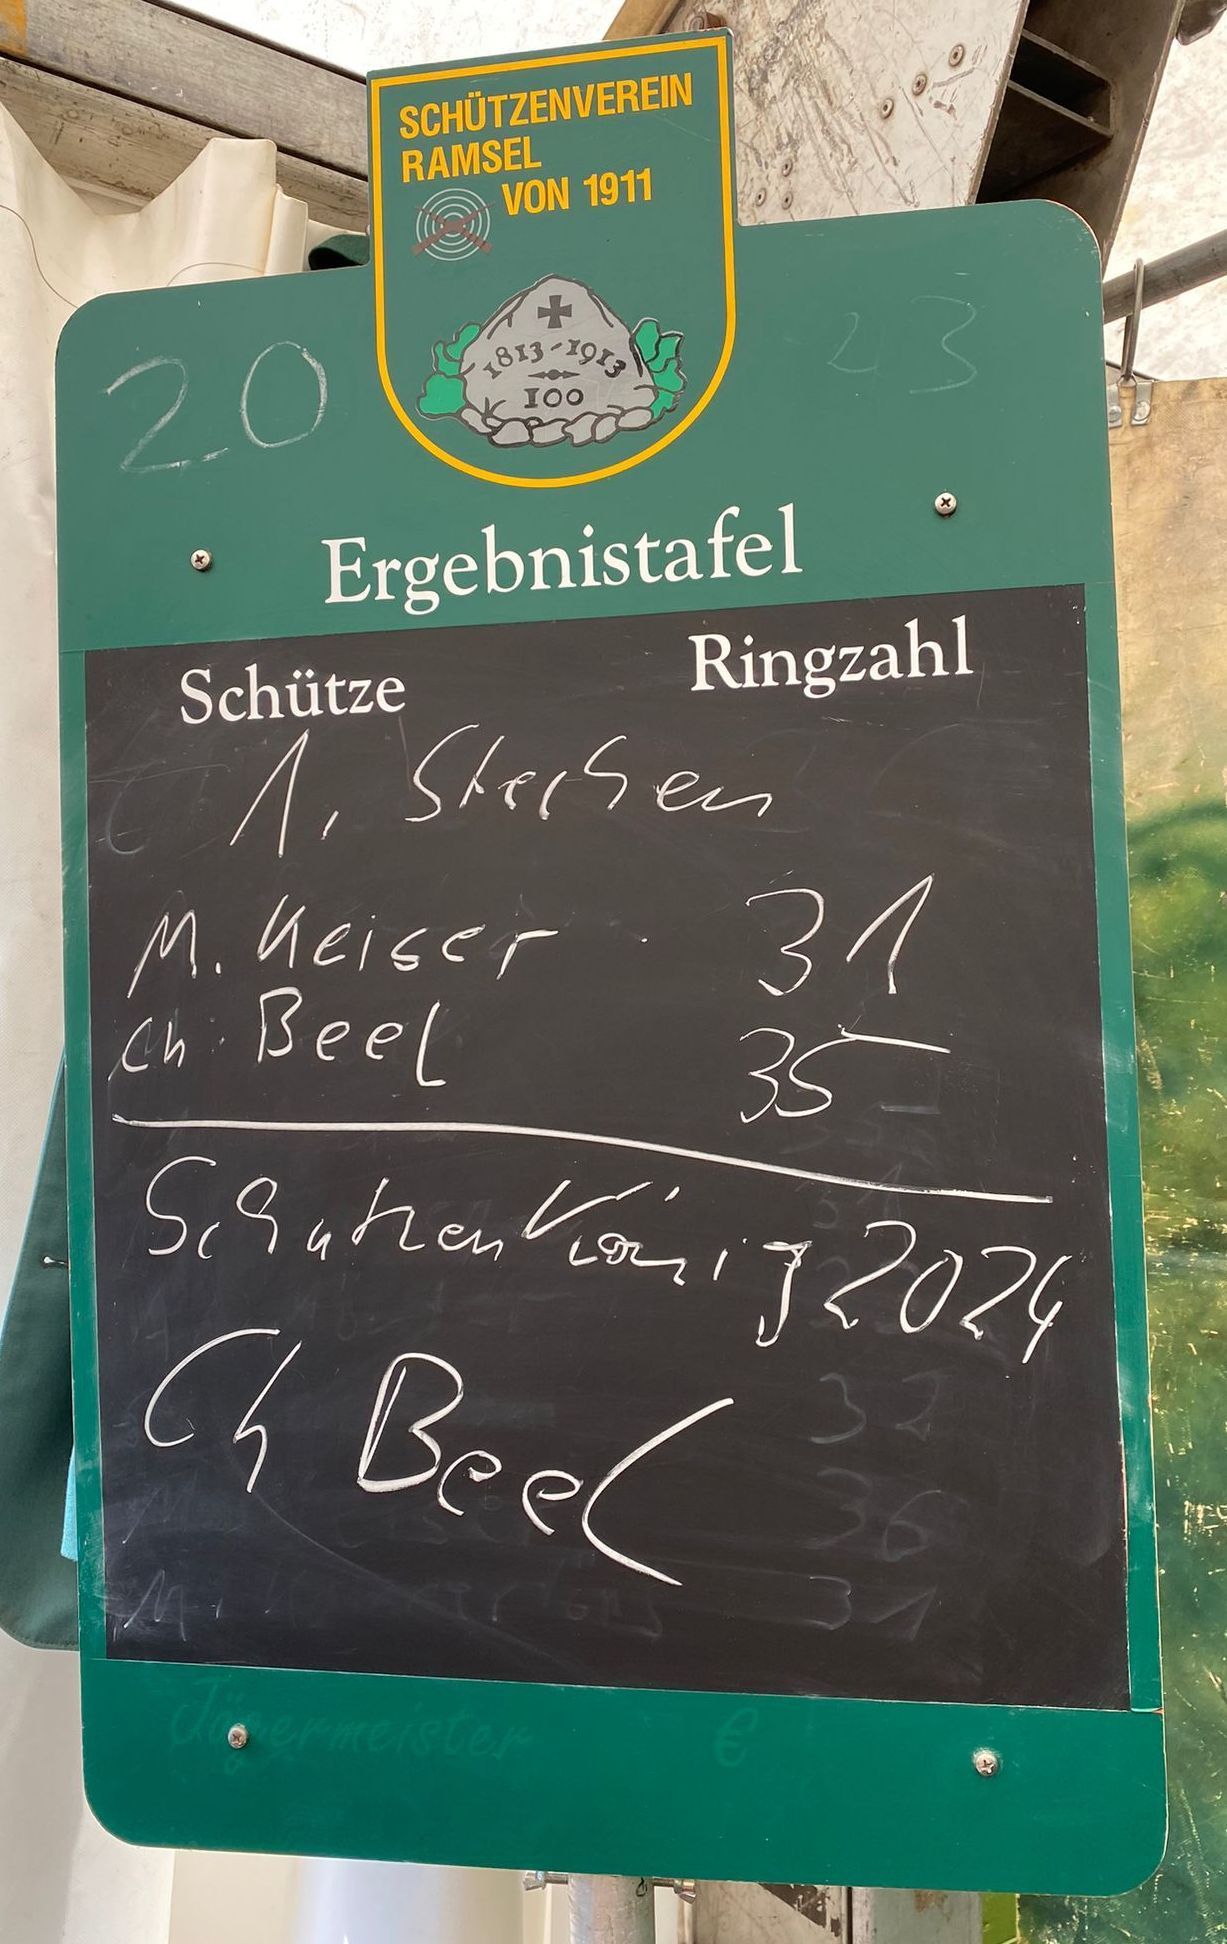 SCHÜTZENVEREIN
RAMSEL
VON 1911
1813-1913
100
20 23
Ergebnistafel
Schütze Ringzahl
1. Stechen
M. Keiser 31
Ch. Beel 35
Schützenkönig 2024
Ch Beel
32
36
31
Jägermeister €